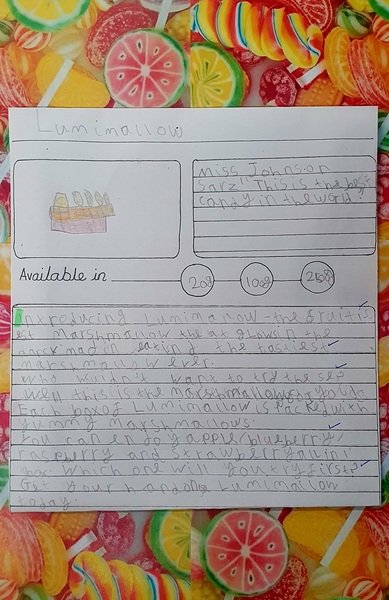 Luminallow
Miss Johnson
sarz "This is the best
candy in the world"
Available in 20g 100g 250g
Introducing Luminallow-the fruiti
est marshmallow the at glows in the
marshmallow ever.
Who wuldn't want to try the se?
Well this is the marshmallow
Each box of Luminallow is packed with
yummy marshmallows.
You can enjoy apple, blueberry,
raspberry and strawberry all in 1
box which one will you try first?
Get your hand on Luminallow
today.